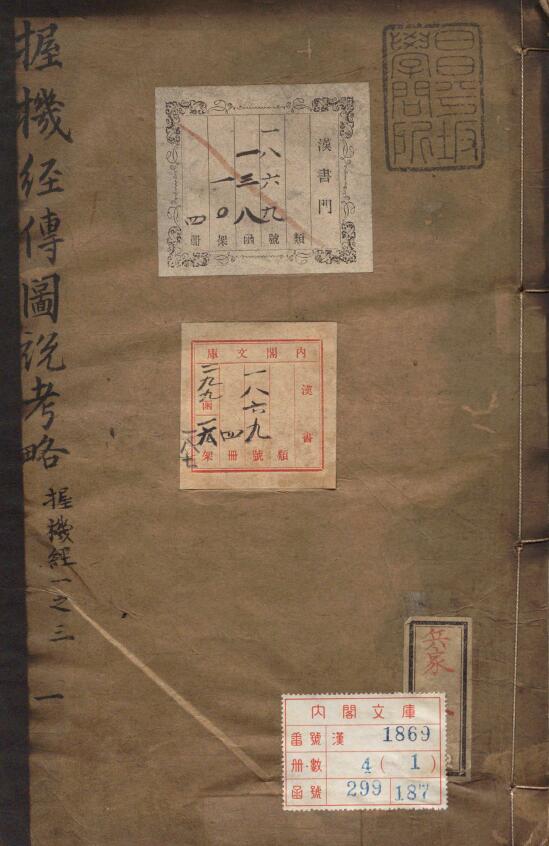 握機経傳圖説考略
握機經一之三
一
昌平坂
學問所
漢書門
一八六九
一三八
一〇
四
類號函架冊
內閣文庫
漢書
一八六九
四
二九九函
一八七
類號冊架
兵家
內閣文庫
番號 漢 1869
冊數 4(1)
函號 299 187